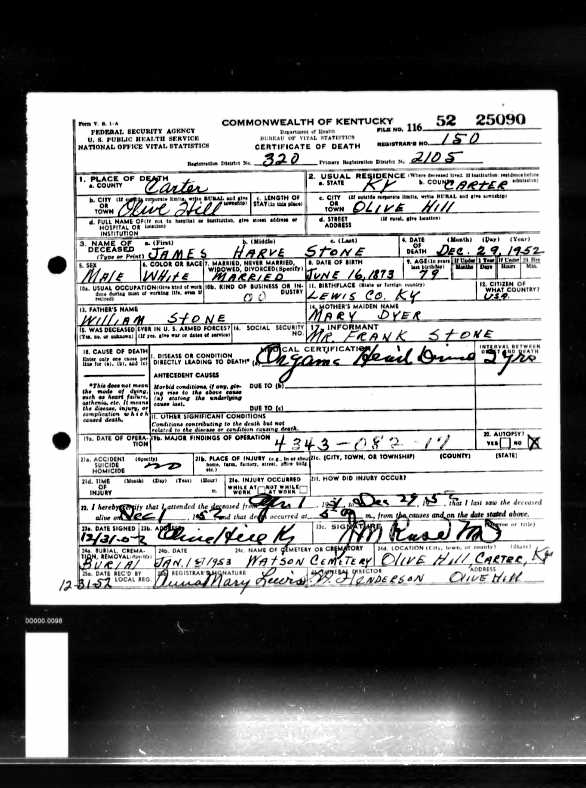 Form V. S. 1-A
FEDERAL SECURITY AGENCY
U. S. PUBLIC HEALTH SERVICE
NATIONAL OFFICE VITAL STATISTICS
COMMONWEALTH OF KENTUCKY
Department of Health
BUREAU OF VITAL STATISTICS
CERTIFICATE OF DEATH
FILE NO. 116 52 25090
REGISTRAR'S NO. 150
Registration District No. 320 Primary Registration District No. 2105
1. PLACE OF DEATH
a. COUNTY Carter
2. USUAL RESIDENCE (Where deceased lived. If institution: residence before admission)
a. STATE KY b. COUNTY CARTER
b. CITY (If outside corporate limits, write RURAL and give township)
OR TOWN Olive Hill
c. LENGTH OF STAY (in this place)
c. CITY (If outside corporate limits, write RURAL and give township)
OR TOWN OLIVE HILL
d. FULL NAME OF (If not in hospital or institution, give street address or location)
HOSPITAL OR INSTITUTION
d. STREET ADDRESS (If rural, give location)
3. NAME OF DECEASED (Type or Print)
a. (First) JAMES b. (Middle) HARVE c. (Last) STONE
4. DATE OF DEATH (Month) (Day) (Year) Dec. 29, 1952
5. SEX MALE
6. COLOR OR RACE WHITE
7. MARRIED, NEVER MARRIED, WIDOWED, DIVORCED (Specify) MARRIED
8. DATE OF BIRTH JUNE 16, 1873
9. AGE (In years last birthday) 79
If Under 1 Year Months Days If Under 24 Hrs Hours Min.
10a. USUAL OCCUPATION (Give kind of work done during most of working life, even if retired)
10b. KIND OF BUSINESS OR INDUSTRY
11. BIRTHPLACE (State or foreign country) LEWIS CO. KY
12. CITIZEN OF WHAT COUNTRY? U.S.A.
13. FATHER'S NAME WILLIAM STONE
14. MOTHER'S MAIDEN NAME MARY DYER
15. WAS DECEASED EVER IN U. S. ARMED FORCES? (Yes, no, or unknown) (If yes, give war or dates of service)
16. SOCIAL SECURITY NO.
17. INFORMANT MR. FRANK STONE
18. CAUSE OF DEATH
Enter only one cause per line for (a), (b), and (c)
MEDICAL CERTIFICATION
INTERVAL BETWEEN ONSET AND DEATH
I. DISEASE OR CONDITION DIRECTLY LEADING TO DEATH* (a) Organic Heart 2 yrs
*This does not mean the mode of dying, such as heart failure, asthenia, etc. It means the disease, injury, or complication which caused death.
ANTECEDENT CAUSES
Morbid conditions, if any, giving rise to the above cause (a) stating the underlying cause last.
DUE TO (b)
DUE TO (c)
II. OTHER SIGNIFICANT CONDITIONS
Conditions contributing to the death but not related to the disease or condition causing death.
19a. DATE OF OPERATION
19b. MAJOR FINDINGS OF OPERATION 4343-082-17
20. AUTOPSY? YES NO X
21a. ACCIDENT SUICIDE HOMICIDE no
21b. PLACE OF INJURY (e.g., in or about home, farm, factory, street, office bldg., etc.)
21c. (CITY, TOWN, OR TOWNSHIP) (COUNTY) (STATE)
21d. TIME OF INJURY (Month) (Day) (Year) (Hour) m.
21e. INJURY OCCURRED WHILE AT WORK NOT WHILE AT WORK
21f. HOW DID INJURY OCCUR?
22. I hereby certify that I attended the deceased from to Dec 29, 1952 that I last saw the deceased
alive on Dec 1, 1952 and that death occurred at m., from the causes and on the date stated above.
23a. DATE SIGNED 12/31/52
23b. ADDRESS Olive Hill Ky
23c. SIGNATURE (Degree or title)
24a. BURIAL, CREMATION, REMOVAL (Specify) BURIAL
24b. DATE JAN. 1st 1953
24c. NAME OF CEMETERY OR CREMATORY WATSON CEMETERY
24d. LOCATION (City, town, or county) (State) OLIVE HILL CARTER, KY
25a. DATE REC'D BY LOCAL REG. 12-31-52
25b. REGISTRAR'S SIGNATURE Anna Mary Lewis
FUNERAL DIRECTOR HENDERSON
ADDRESS OLIVE HILL
00000.0098